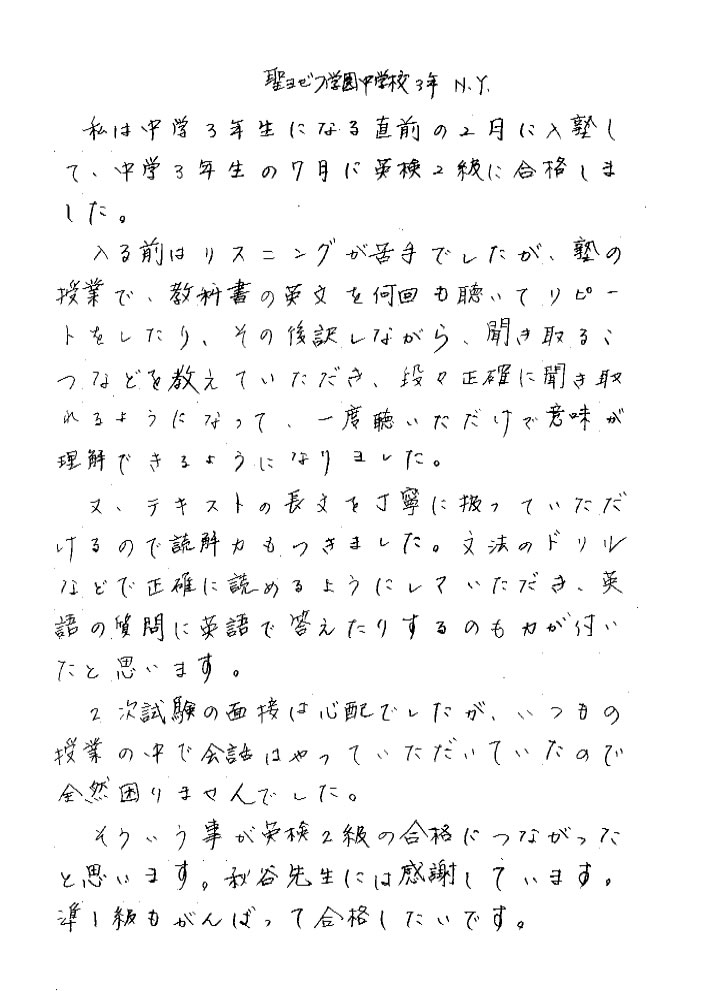 聖ヨゼフ学園中学校3年 N.Y.
私は中学3年生になる直前の2月に入塾し
て、中学3年生の7月に英検2級に合格しま
した。
入る前はリスニングが苦手でしたが、塾の
授業で、教科書の英文を何回も聴いてリピー
トをしたり、その後訳しながら、聞き取るこ
つなどを教えていただき、段々正確に聞き取
れるようになって、一度聴いただけで意味が
理解できるようになりました。
又、テキストの長文を丁寧に扱っていただ
けるので読解力もつきました。文法のドリル
などで正確に読めるようにしていただき、英
語の質問に英語で答えたりするのも力が付い
たと思います。
2次試験の面接は心配でしたが、いつもの
授業の中で会話はやっていただいていたので
全然困りませんでした。
そういう事が英検2級の合格につながった
と思います。秋谷先生には感謝しています。
準1級もがんばって合格したいです。